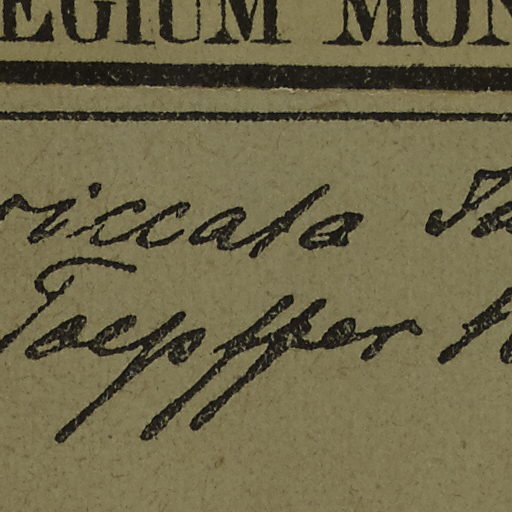 EGIUM MON
riccata Ja
Toepffer